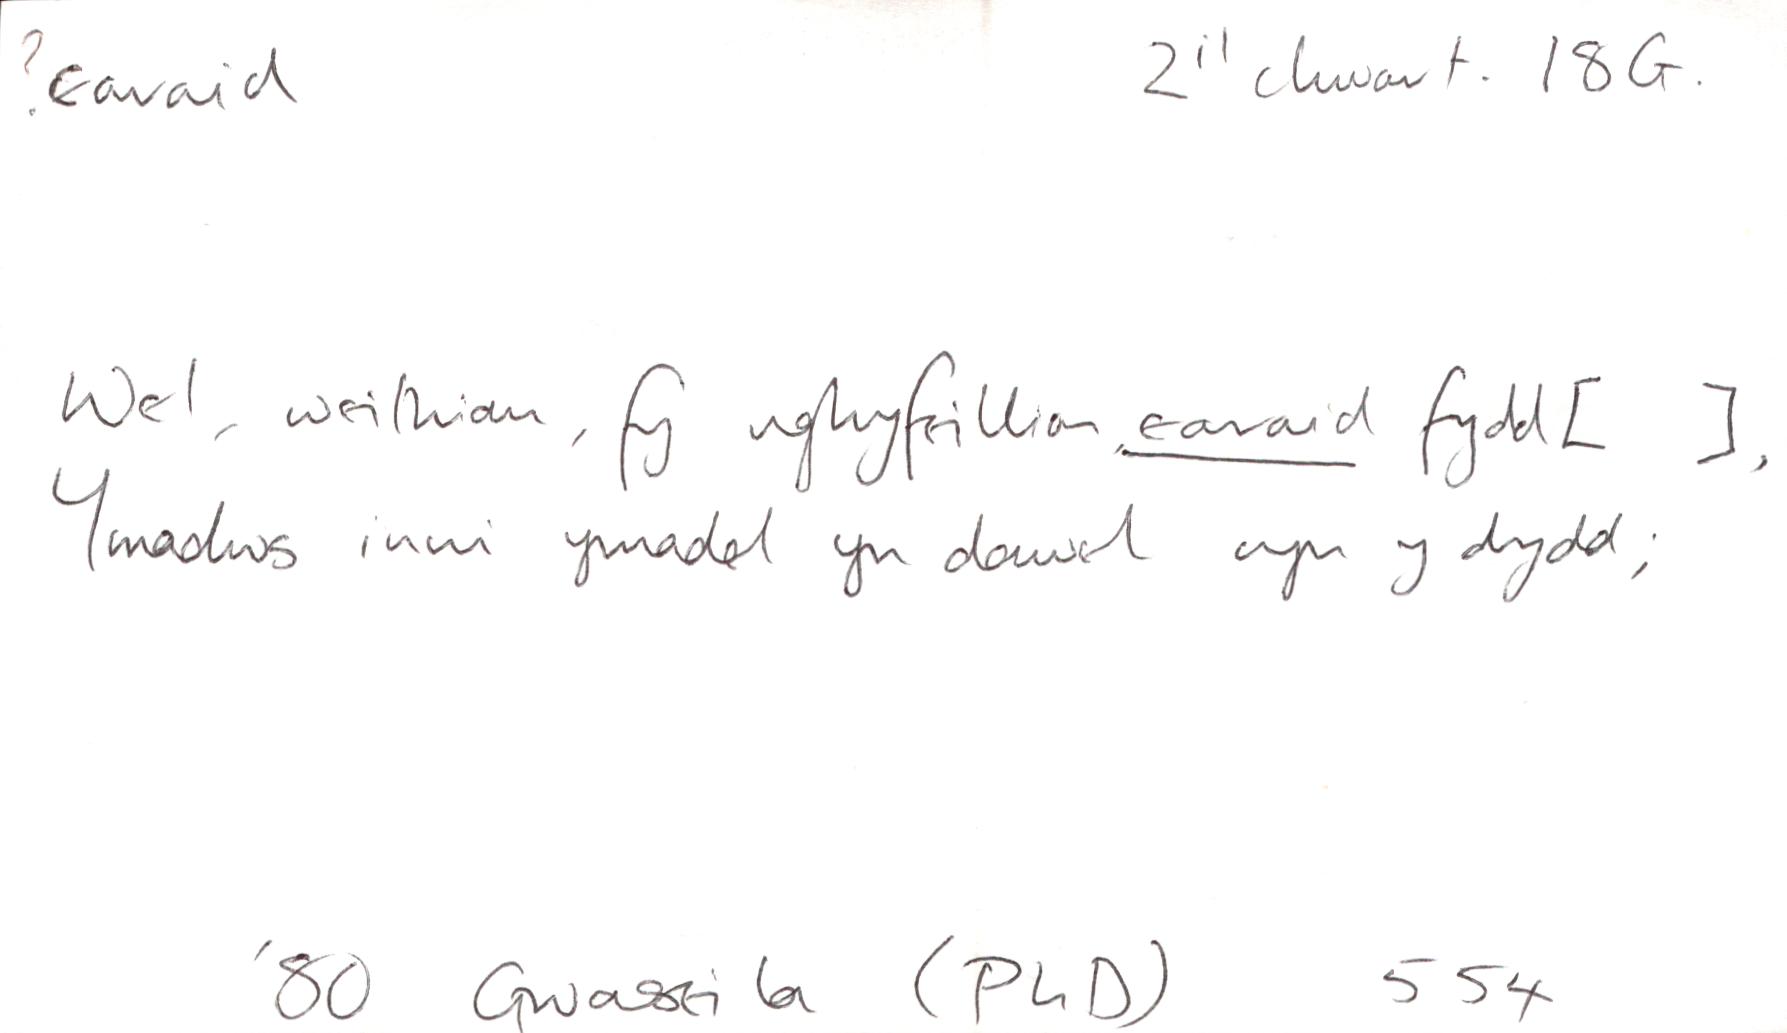 ?earaid 2il chwart. 18G.
Wel, weithian, fy nghyfeillion, earaid fydd [ ],
Ymadws inni ymadel yn dawel cyn y dydd;
'80 Gwaseila (PhD) 554